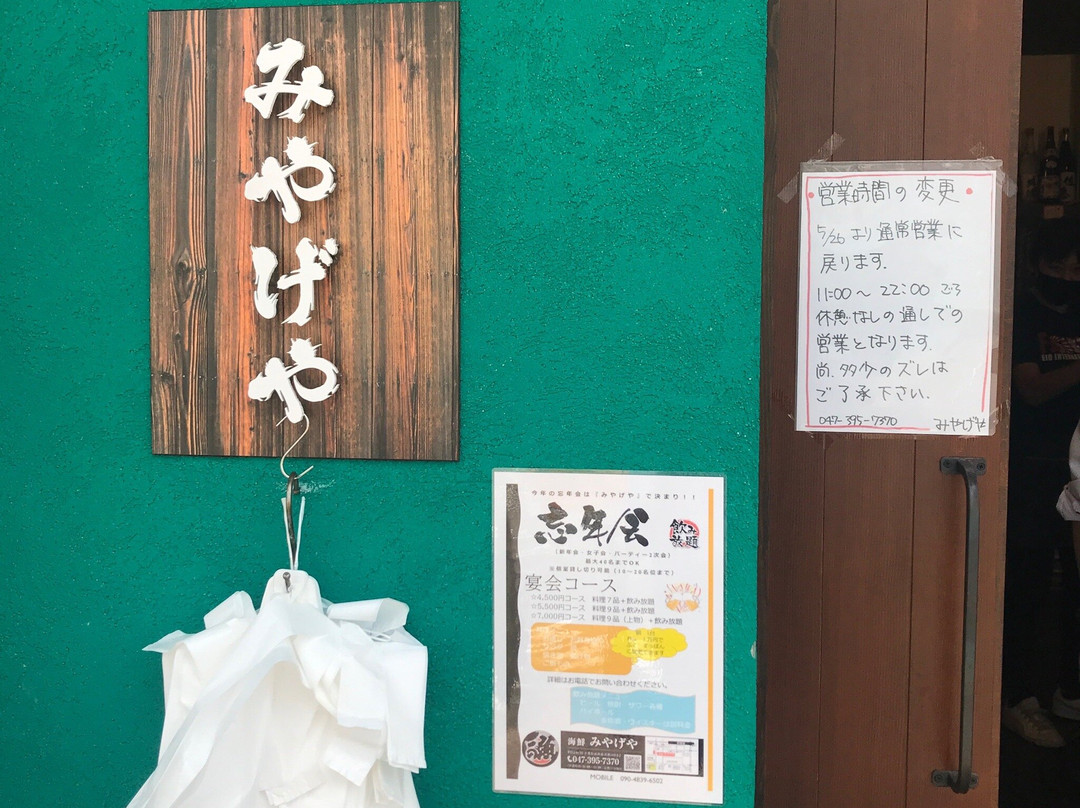 みやげや
営業時間の変更
5/26より通常営業に
戻ります.
11:00〜22:00ごろ
休憩なしの通しでの
営業となります.
尚.多少のズレは
ご了承下さい.
047-395-7370 みやげや
今年の忘年会は『みやげや』で決まり!!
忘年会
飲み
放題
(新年会・女子会・パーティー2次会)
最大40名までOK
宴会コース
☆4,500円コース 料理7品+飲み放題
☆5,500円コース 料理9品+飲み放題
☆7,000円コース 料理9品(上物)+飲み放題
詳細はお電話でお問い合わせください。
海鮮 みやげや
047-395-7370
MOBILE 090-4839-6502